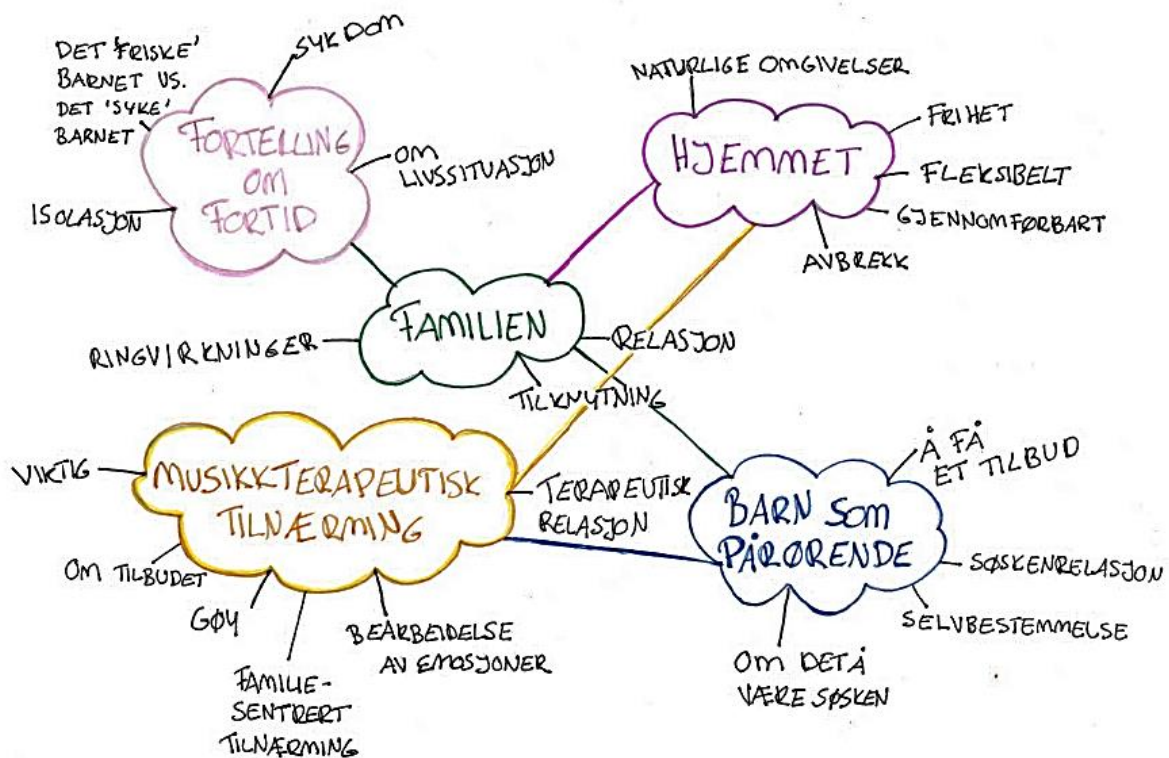 SYKDOM
DET 'FRISKE'
BARNET VS.
DET 'SYKE'
BARNET
FORTELLING
OM
FORTID
OM
LIVSSITUASJON
ISOLASJON
NATURLIGE OMGIVELSER
HJEMMET
FRIHET
FLEKSIBELT
GJENNOMFØRBART
AVBREKK
FAMILIEN
RINGVIRKNINGER
RELASJON
TILKNYTNING
MUSIKKTERAPEUTISK
TILNÆRMING
VIKTIG
TERAPEUTISK
RELASJON
OM TILBUDET
GØY
FAMILIE-
SENTRERT
TILNÆRMING
BEARBEIDELSE
AV EMOSJONER
BARN SOM
PÅRØRENDE
Å FÅ
ET TILBUD
SØSKENRELASJON
SELVBESTEMMELSE
OM DET Å
VÆRE SØSKEN